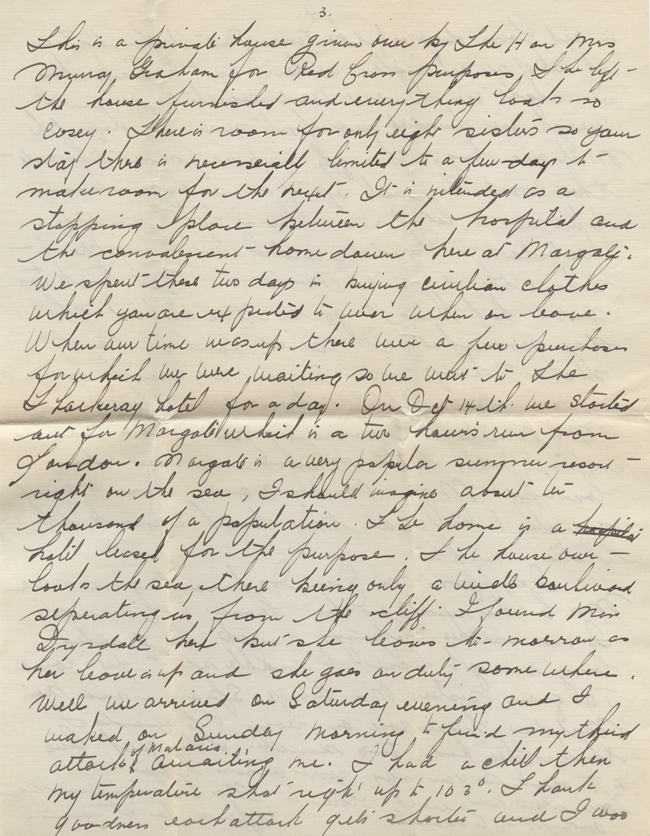 3.
This is a private house given over by The Hon Mrs
Murray Graham for Red Cross purposes, She left
the house furnished and everything looks so
cosey. There is room for only eight sisters so your
stay there is limited to a few days to
make room for the next. It is intended as a
stopping place between the hospital and
the convalescent home down here at Margate.
We spent these two days in buying civilian clothes
which you are expected to wear when on leave.
When our time was up there were a few purchases
for which we were waiting so we went to the
Thackeray hotel for a day. On Oct 14th. we started
out for Margate which is a two hours run from
London. Margate is a very popular summer resort
right on the sea, I should imagine about ten
thousand of a population. The home is a hospital
hotel leased for the purpose. The house over-
looks the sea, there being only a wide boulivard
seperating us from the cliff. I found Miss
Drysdale here but she leaves to-morrow as
her leave is up and she goes on duty some where.
Well we arrived on Saturday evening and I
waked on Sunday morning to find my third
attack of Malaria awaiting me. I had a chill then
my temperature shot right up to 103°. Thank
goodness each attack gets shorter and I was